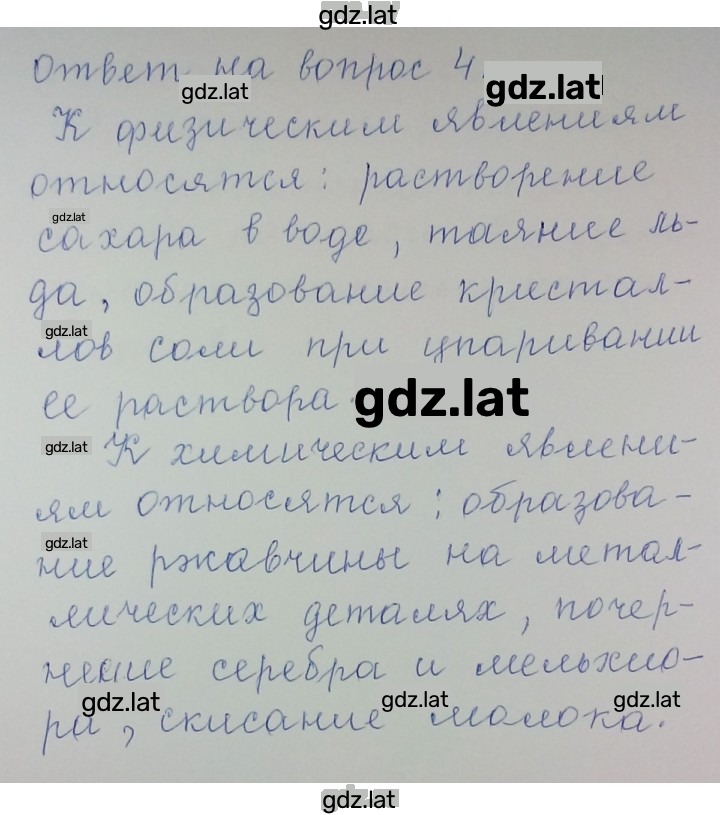 gdz.lat
Ответ на вопрос 4.
gdz.lat
gdz.lat
К физическим явлениям
относятся: растворение
gdz.lat
сахара в воде, таяние ль-
да, образование кристал-
gdz.lat
лов соли при цпаривании
ее раствора.
gdz.lat
gdz.lat
К химическим явлени-
ям относятся: образова-
gdz.lat
ние ржавчины на метал-
лических деталях, почер-
нение серебра и мельхио-
gdz.lat
gdz.lat
gdz.lat
ра, скисание молока.
gdz.lat